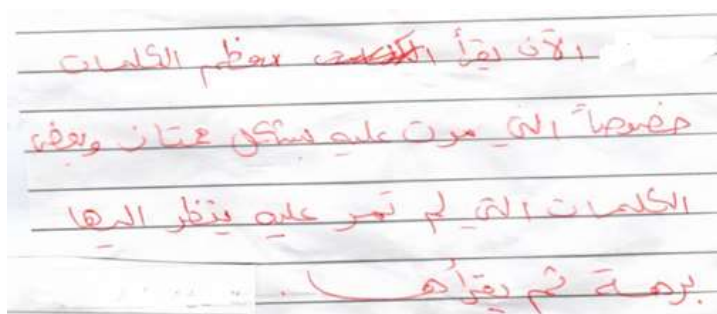 الآن يقرأ معظم الكلمات
خصوصاً التي مرت عليه بشكل ممتاز وبعض
الكلمات التي لم تمر عليه ينظر اليها
برهة ثم يقرأها .